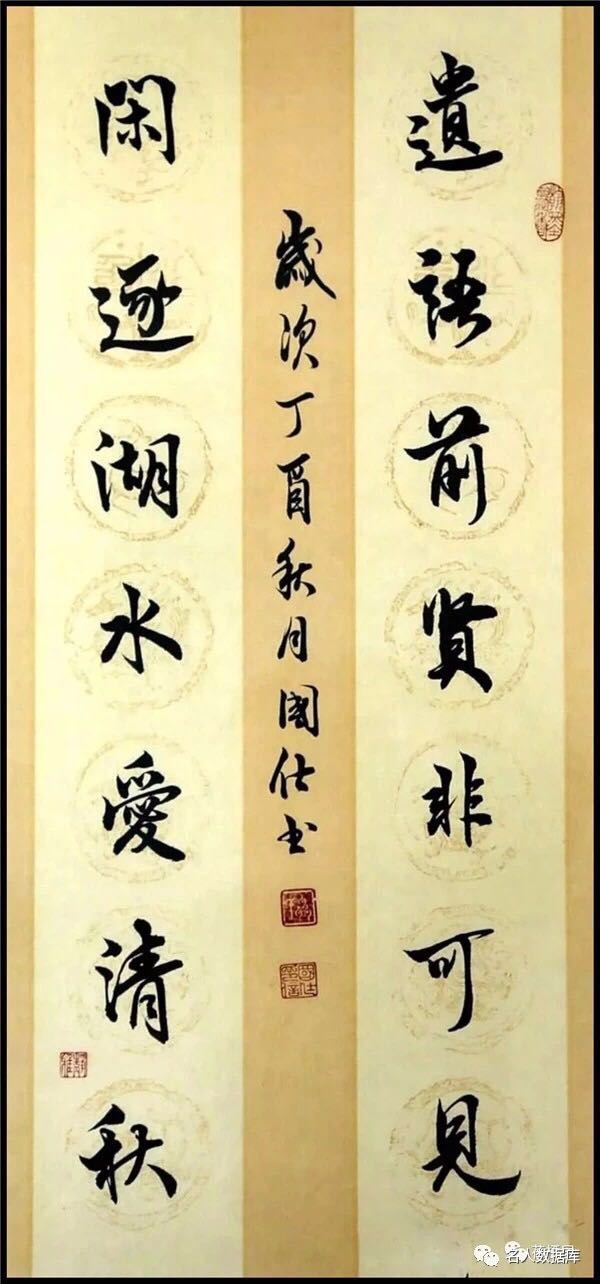 遺語前賢非可見
閑逐湖水愛清秋
歲次丁酉秋月國仕书
名人数据库